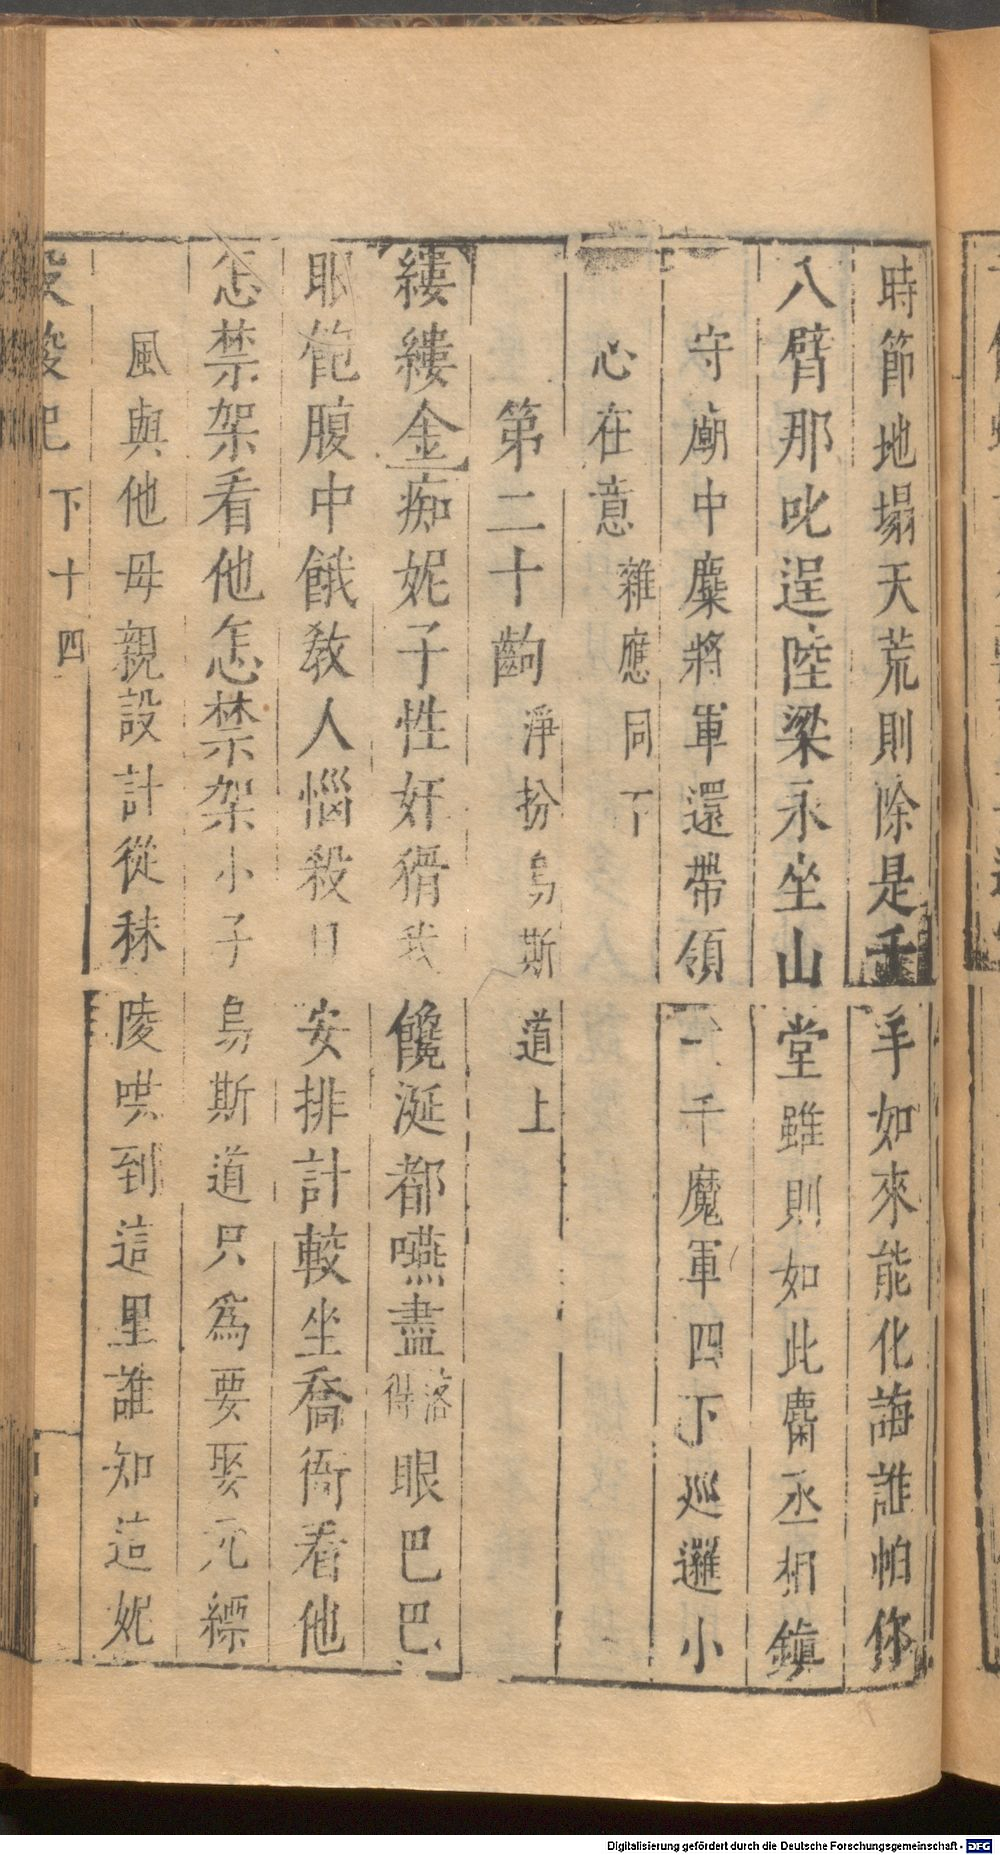 時節地塌天荒則除是千手如來能化誨誰怕你
八臂那叱逞陸梁永坐山堂雖則如此麋丞相鎮
守廟中麋將軍還帶領一千魔軍四下巡邏小
心在意雜應同下
第二十齣淨扮烏斯道上
縷縷金痴妮子性奸猾我饞涎都嚥盡落得眼巴巴
眼飽腹中餓教人惱殺日安排計較坐喬衙看他
怎禁架看他怎禁架小子烏斯道只為要娶元縹
風與他母親設計從秣陵哄到這里誰知這妮
記 下十四
Digitalisierung gefördert durch die Deutsche Forschungsgemeinschaft - DFG